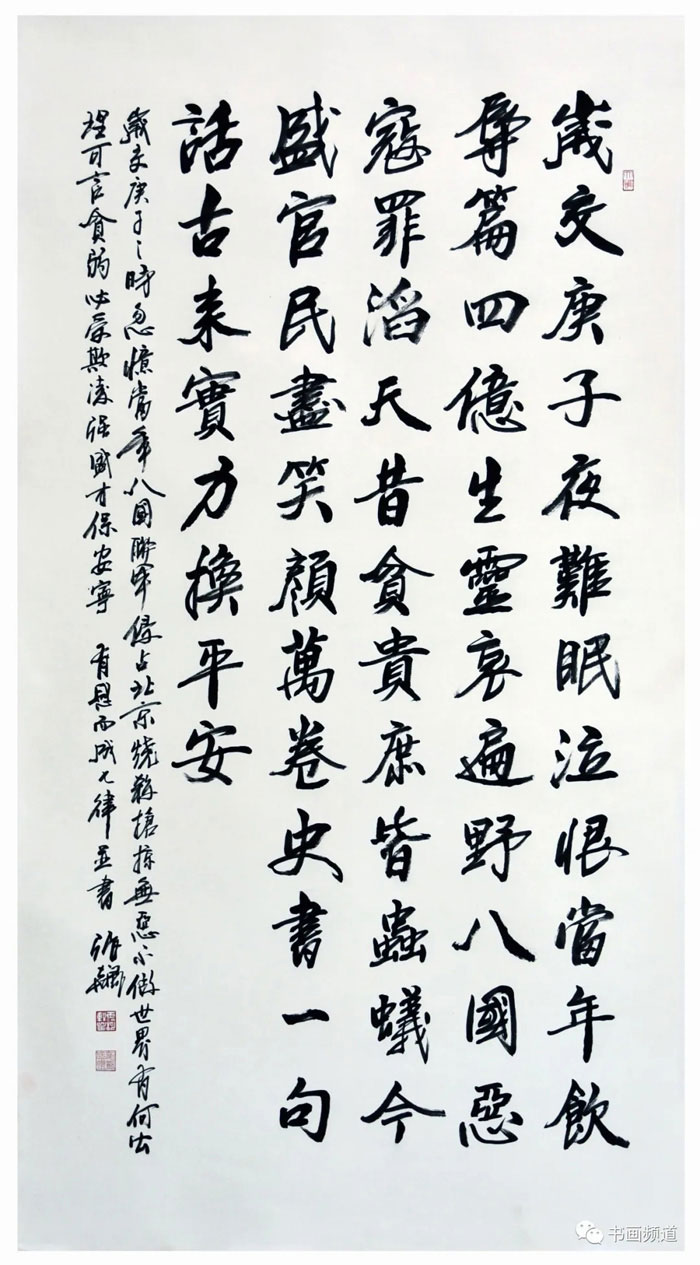 歲交庚子夜難眠泣恨當年飲
辱篇四億生靈哀遍野八國惡
寇罪滔天昔貧貴庶皆蟲蟻今
盛官民盡笑顏萬卷史書一句
話古來實力換平安
歲交庚子之時忽憶當年八國聯軍侵占北京燒殺搶掠無惡不做世界有何公
理可言貧弱必受欺凌強盛才保安寧 有感而成七律並書 張飈
书画频道